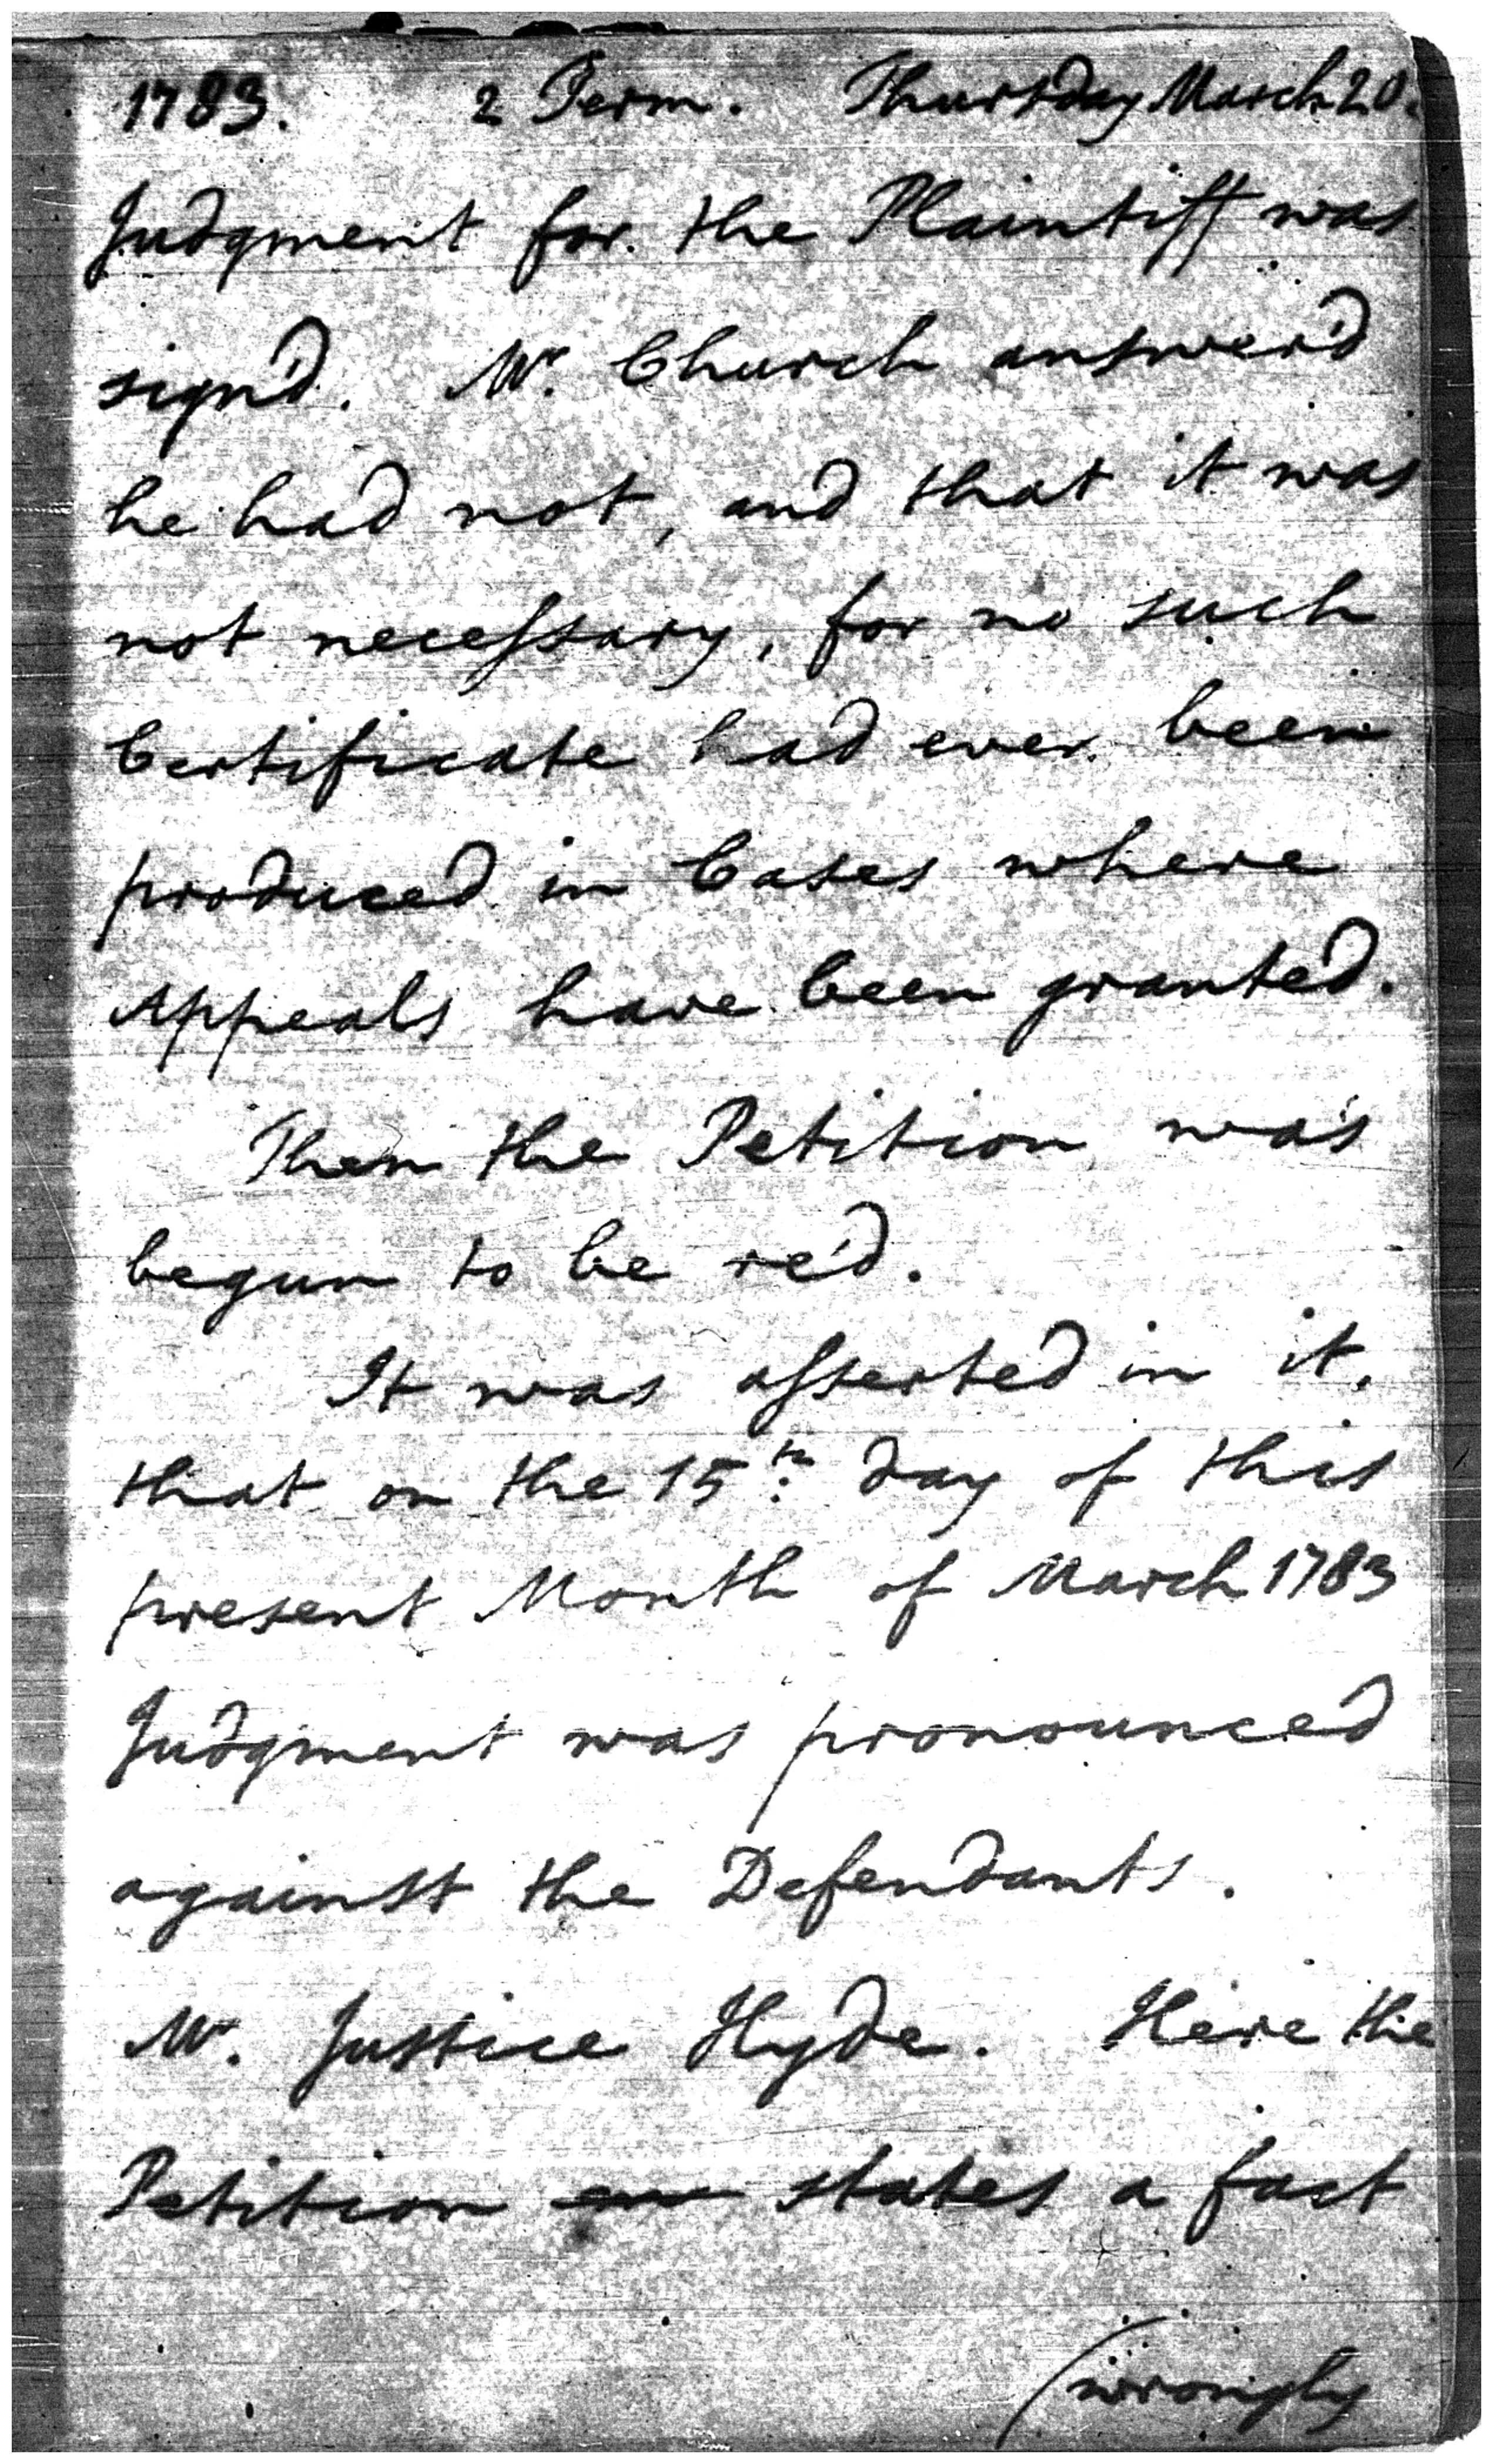 1783. 2 Term. Thursday March 20.
Judgment for the Plaintiff was
sign'd. Mr. Church answer'd
he had not, and that it was
not necessary, for no such
Certificate had ever been
produced in Cases where
Appeals have been granted.
Then the Petition was
begun to be re'd.
It was asserted in it,
that on the 15th day of this
present Month of March 1783
Judgment was pronounced
against the Defendants.
Mr. Justice Hyde. Here the
Petition states a fact
(wrongly